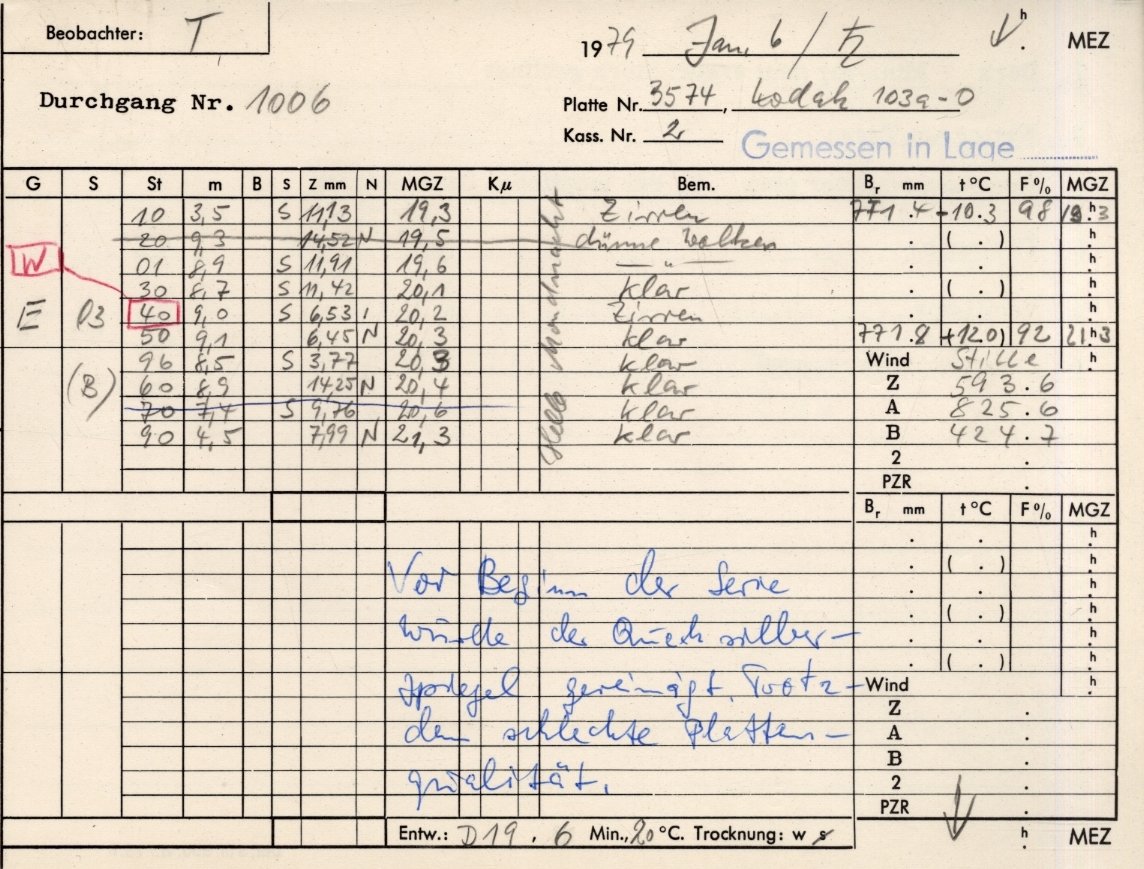 Beobachter: T
1979 Jan. 6 / ♄ h . MEZ
Durchgang Nr. 1006
Platte Nr. 3574, Kodak 103a-O
Kass. Nr. 2
Gemessen in Lage
G S St m B S Z mm N MGZ Kμ Bem. Br mm t °C F % MGZ
10 3,5 S 11,13 19,3 Zirren 771.4 -10.3 98 19.h3
20 9,3 14,52 N 19,5 dünne Wolken . ( . ) .h
W 01 8,9 S 11,91 19,6 — " — . . .h
30 8,7 S 11,42 20,1 klar . ( . ) .h
E 03 40 9,0 S 6,53 20,2 Zirren . . .h
50 9,1 6,45 N 20,3 klar 771.8 92 21.h3
96 8,5 S 3,77 20,3 klar Wind Stille .h
(B) 60 8,9 14,25 N 20,4 klar Z 593.6
70 7,4 S 9,76 20,6 klar A 825.6
90 4,5 7,99 N 21,3 klar B 424.7
Helle Mondnacht
2 .
PZR .
Br mm t °C F % MGZ
. . .h
. ( . ) .h
Vor Beginn der Serie . . .h
. ( . ) .h
wurde der Quecksilber- . . .h
. ( . ) .h
spiegel gereinigt. Trotz- Wind .h
Z .
dem schlechte Platten- A .
B .
qualität. 2 .
PZR .
Entw.: D19 . 6 Min., 20 °C. Trocknung: w s h . MEZ